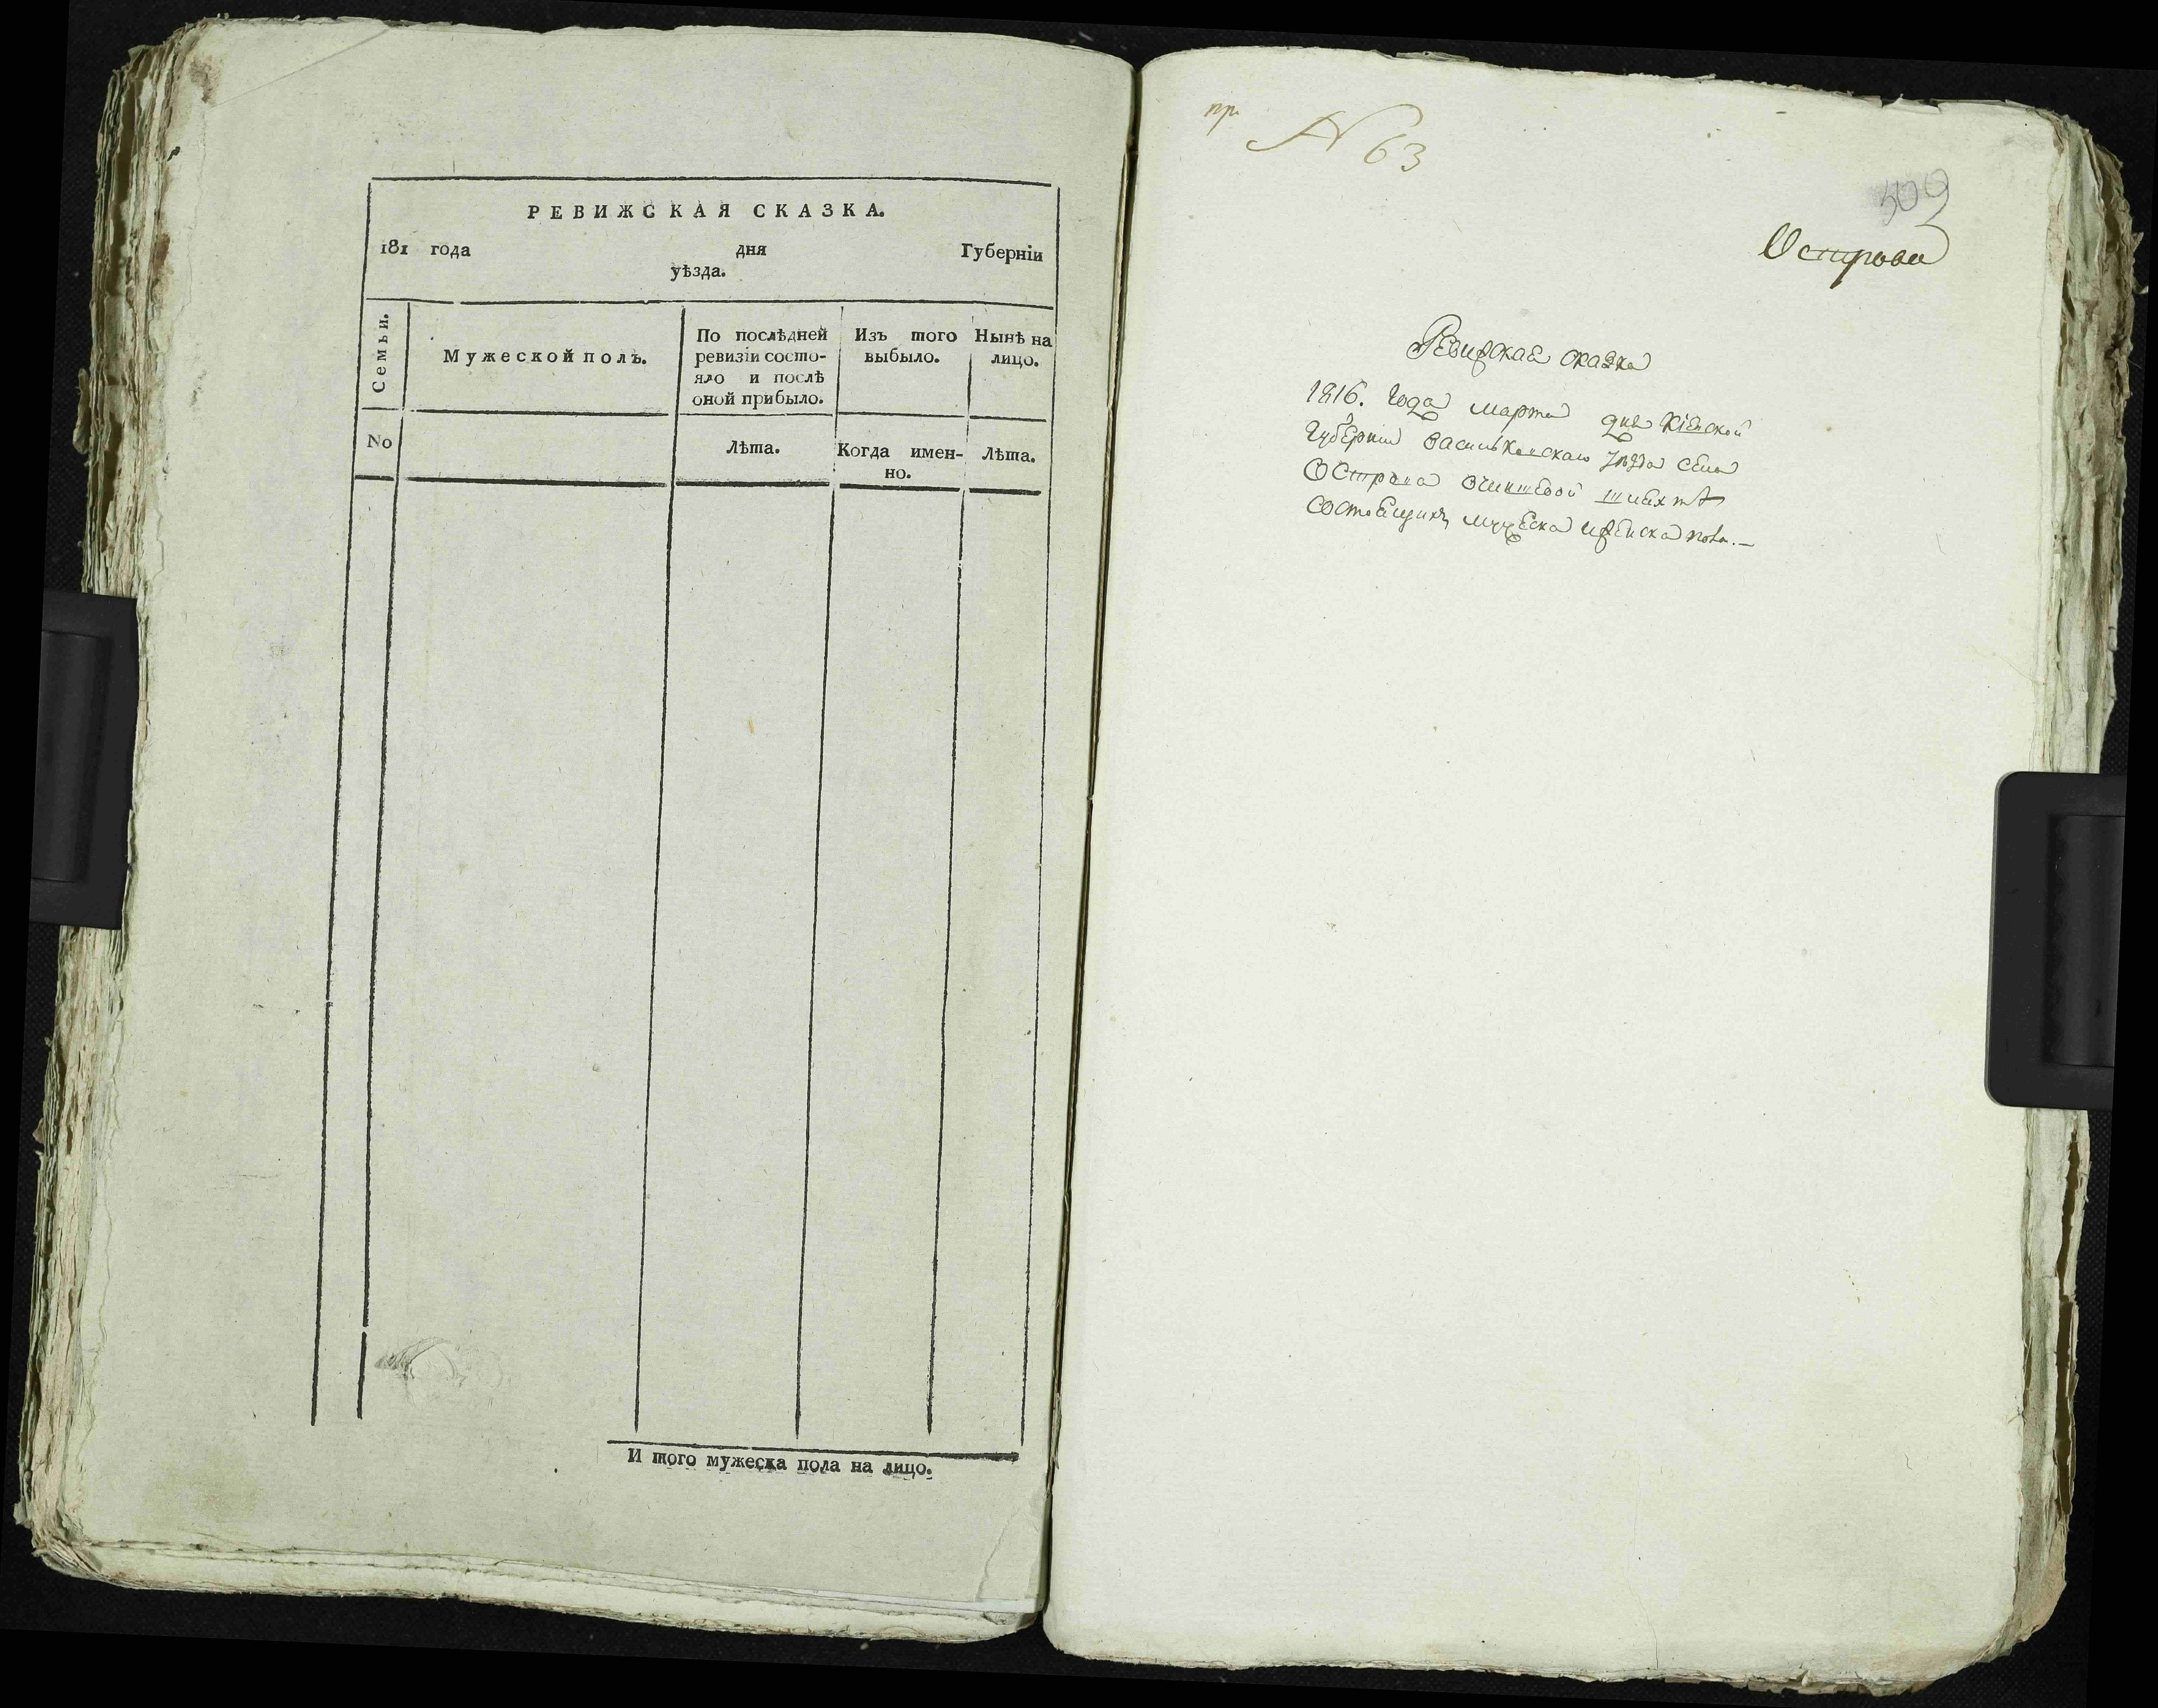 РЕВИЖСКАЯ СКАЗКА.
181 года дня Губерніи
уѣзда.
Семьи.
Мужеской полъ.
По послѣдней
ревизіи состо-
яло и послѣ
оной прибыло.
Изъ того
выбыло.
Нынѣ на
лицо.
No
Лѣта.
Когда имен-
но.
Лѣта.
И того мужеска пола на лицо.
пр. N 63
509
Острова
Ревизская сказка
1816. года марта дня Кіевской
Губерніи Васильковскаго уѣзда села
Острова
состоящихъ мужеска и женска пола.—